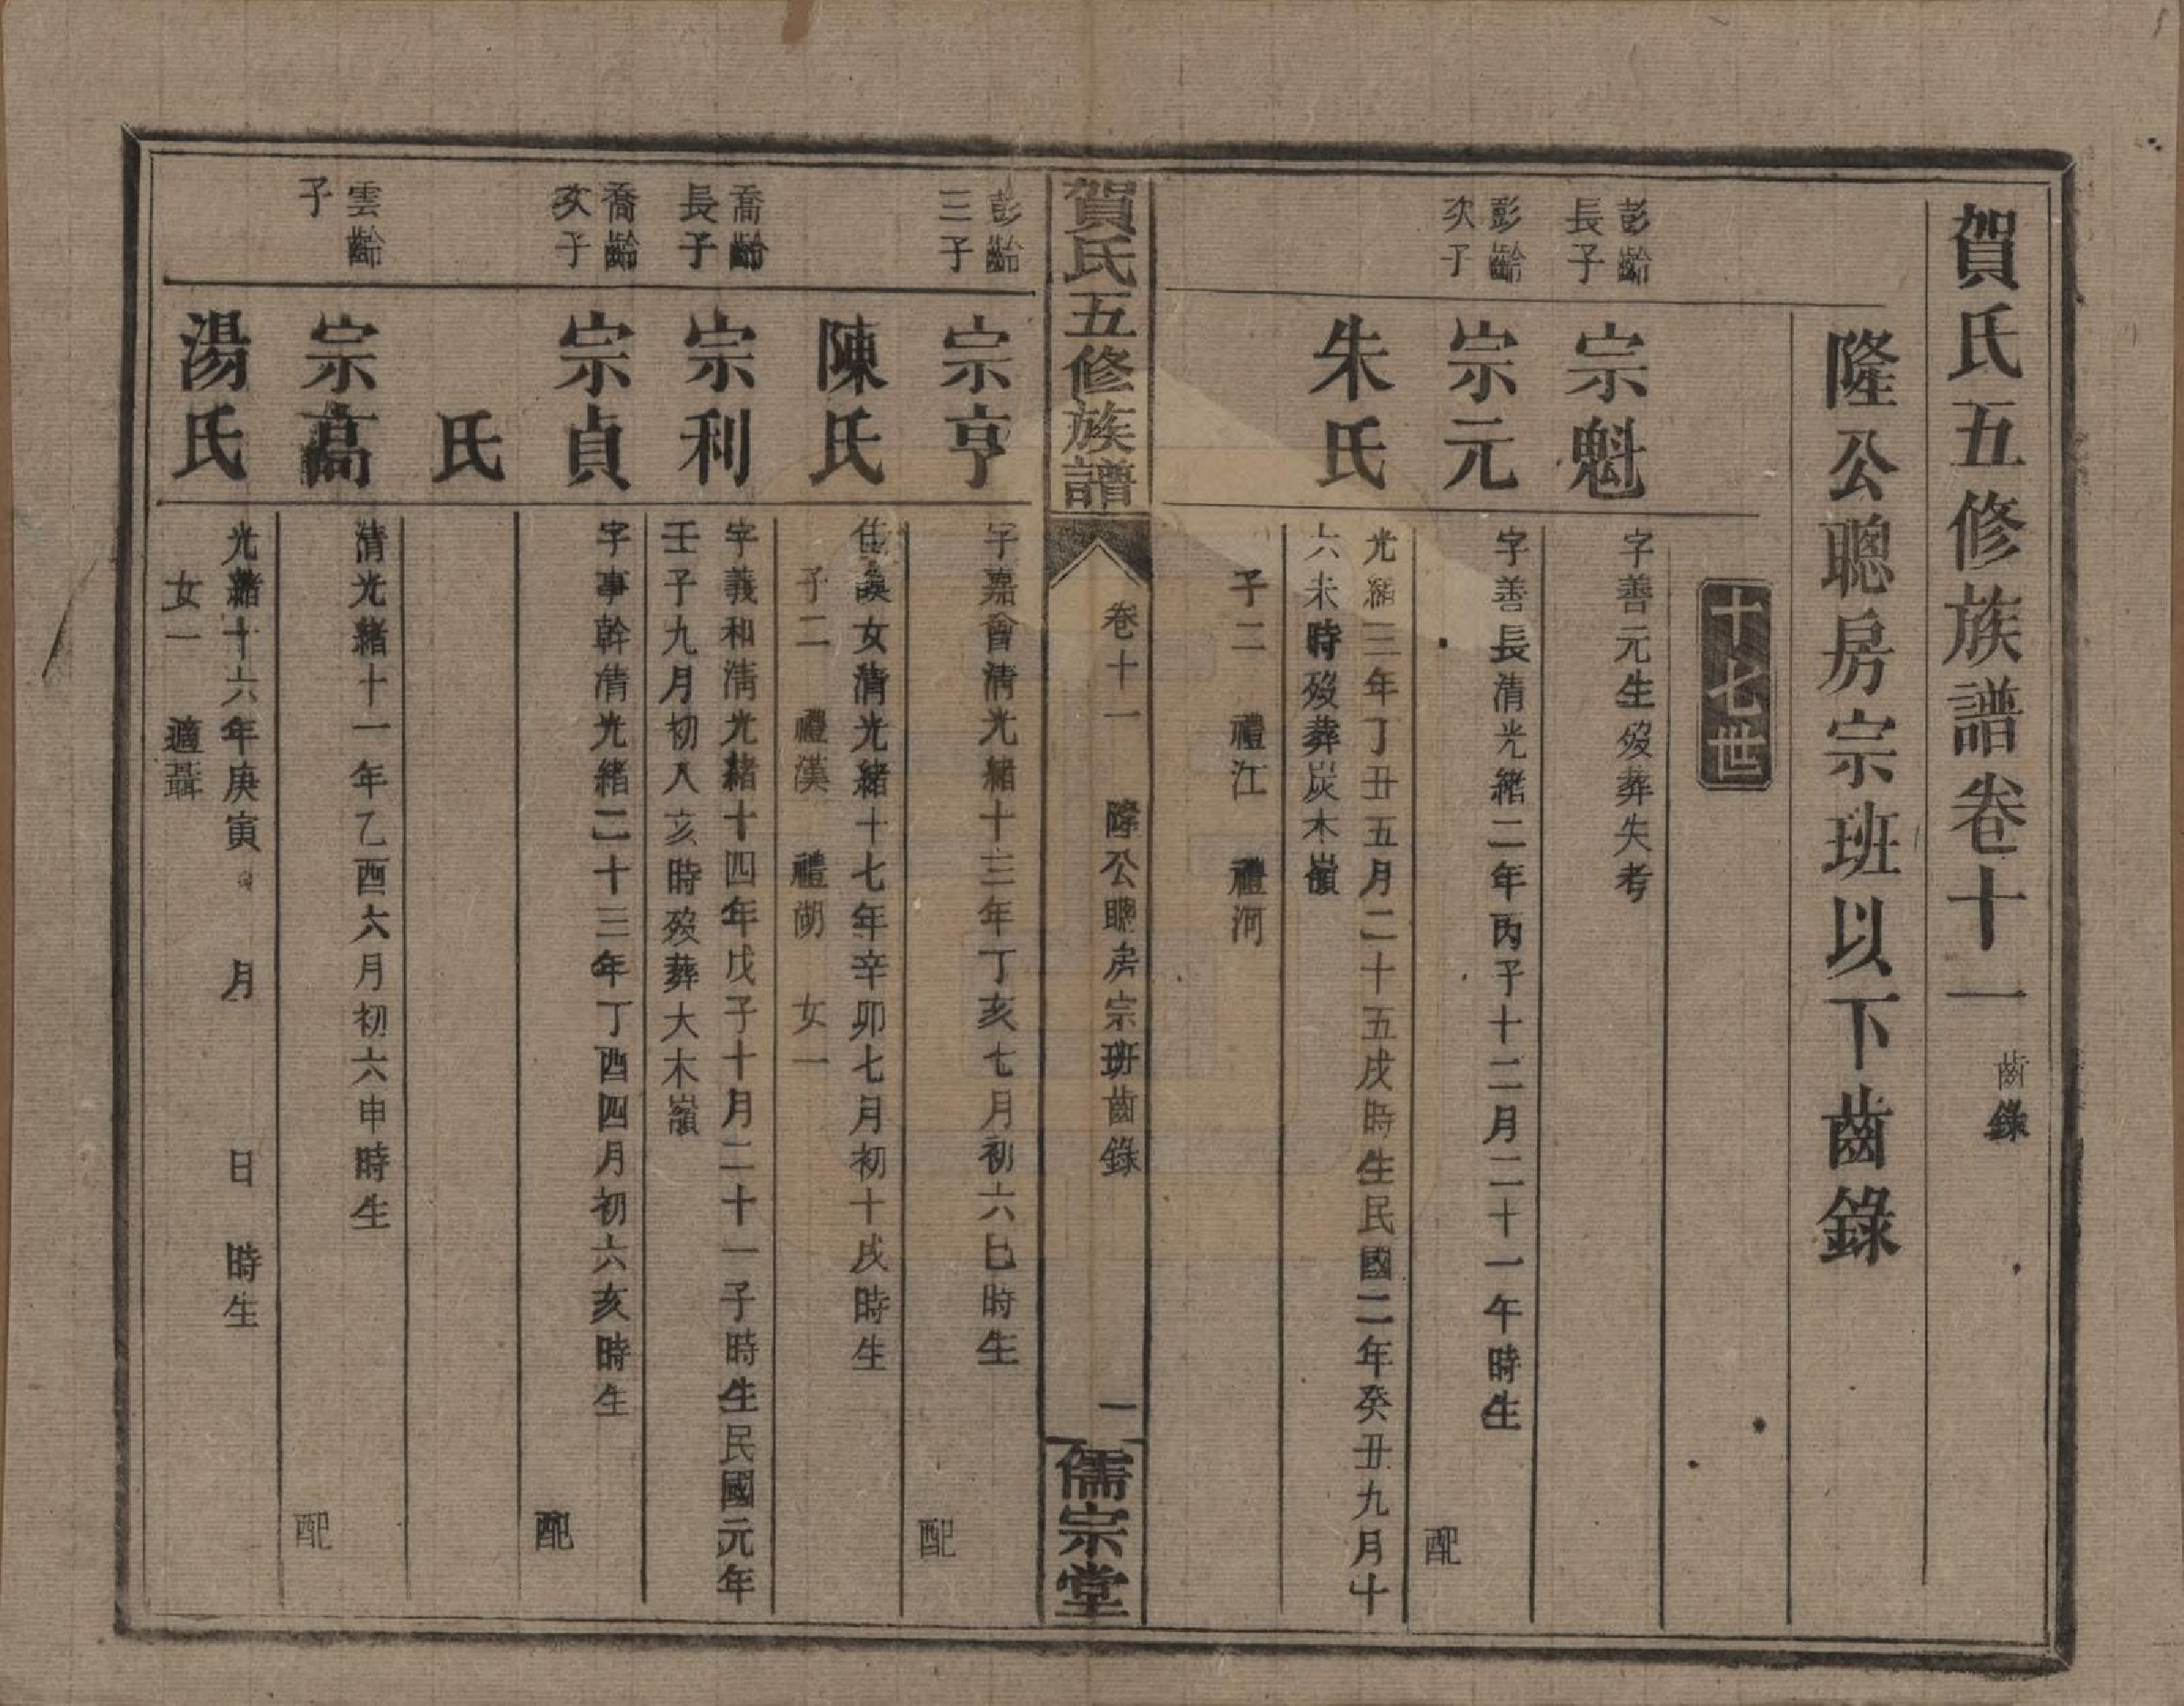 賀氏五修族譜卷十一 齒錄
隆公聰房宗班以下齒錄
十七世
彭齡
長子
宗魁
字善元生歿葬失考
彭齡
次子
宗元
字善長清光緒二年丙子十二月二十一午時生
配
朱氏
光緒三年丁丑五月二十五戌時生民國二年癸丑九月十
六未時歿葬炭木嶺
子二 禮江 禮河
賀氏五修族譜
卷十一 隆公聰房宗班齒錄
一
儒宗堂
彭齡
三子
宗亨
字嘉會清光緒十三年丁亥七月初六巳時生
配
陳氏
佳談女清光緒十七年辛卯七月初十戌時生
子二 禮漢 禮湖 女一
喬齡
長子
宗利
字義和清光緒十四年戊子十月二十一子時生民國元年
壬子九月初八亥時歿葬大木嶺
喬齡
次子
宗貞
字事幹清光緒二十三年丁酉四月初六亥時生
配
氏
雲齡
子
宗高
清光緒十一年乙酉六月初六申時生
配
湯氏
光緒十六年庚寅 月 日 時生
女一 適聶